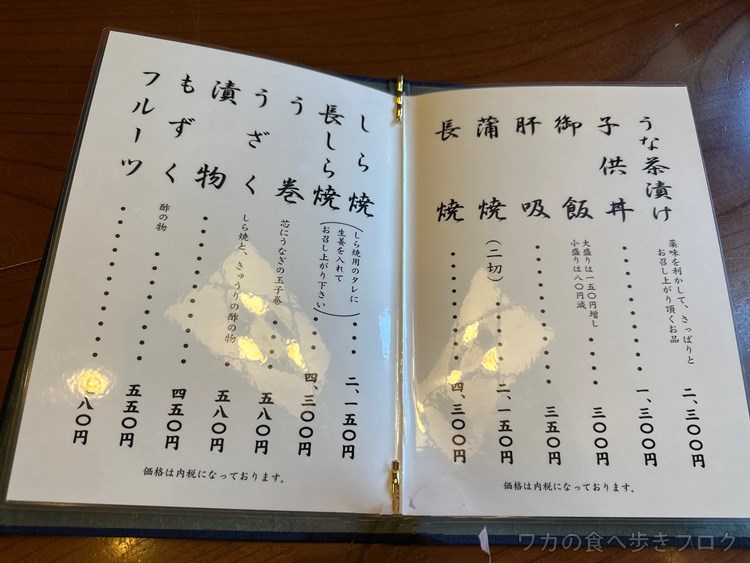 うな茶漬け
薬味を利かして、さっぱりと
お召し上がり頂くお品
二、三〇〇円
子供丼・・・・・・・・一、三〇〇円
御飯
大盛りは一五〇円増し
小盛りは八〇円減
・・・・三〇〇円
肝吸・・・・・・・・三五〇円
蒲焼(二切)・・・・二、一五〇円
長焼・・・・・・・・四、三〇〇円
価格は内税になっております。
しら焼
長しら焼
(しら焼用のタレに
生姜を入れて
お召し上がり下さい)
・・・・二、一五〇円
・・・・四、三〇〇円
う巻
芯にうなぎの玉子巻
・・・・五八〇円
うざく
しら焼と、きゅうりの酢の物
・・五八〇円
漬物・・・・・・・・四五〇円
もずく
酢の物
・・・・・・・・五五〇円
フルーツ・・・・・・・・八〇円
価格は内税になっております。
ワカの食べ歩きブログ